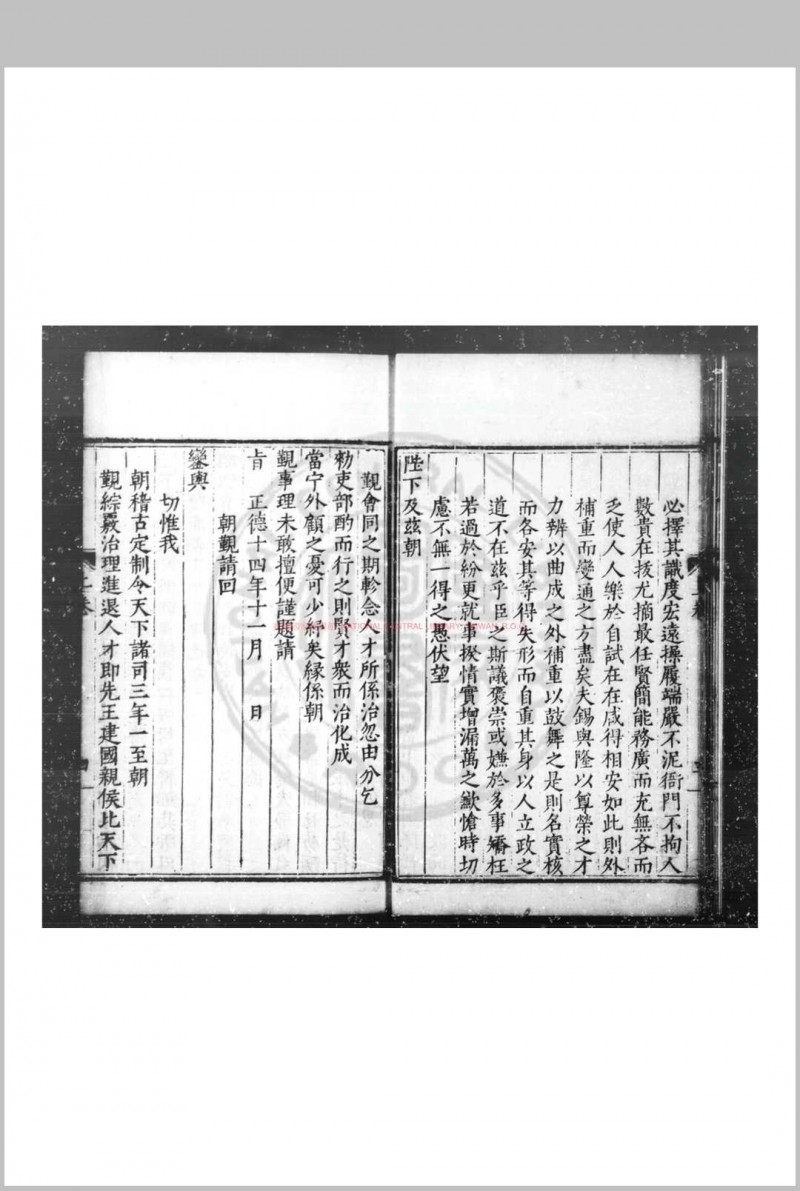 必擇其識度宏遠操履端嚴不泥衙門不拘人
數貴在拔尤摘最任賢簡能務廣而充無吝而
乏使人人樂於自試在在咸得相安如此則外
補重而變通之方盡矣夫錫輿隆以尊榮之才
力辨以曲成之外補重以鼓舞之是則名實核
而各安其等得失形而自重其身以人立政之
道不在茲乎臣之斯議褒崇或嫌於多事矯枉
若過於紛更就事揆情實增漏萬之歉愴時切
慮不無一得之愚伏望
陛下及茲朝
覲會同之期軫念人才所係治忽由分乞
勑吏部酌而行之則賢才衆而治化成
當宁外顧之憂可少紓矣緣係朝
覲事理未敢擅便謹題請
旨 正德十四年十一月 日
朝覲請回
鑾輿
切惟我
朝稽古定制令天下諸司三年一至朝
覲綜覈治理進退人才即先王建國親侯比天下
上卷
NATIONAL CENTRAL LIBRARY, TAIWAN R.O.C